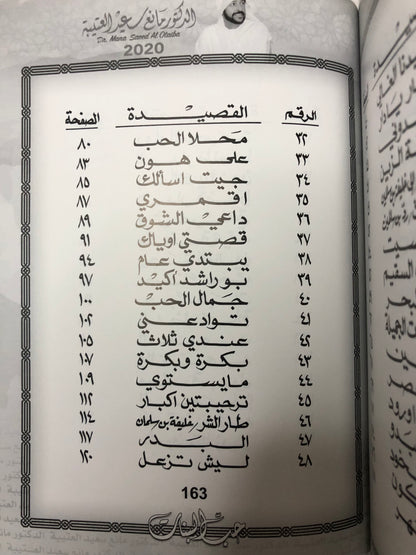 الدكتور مانع سعيد العتيبة
Dr. Mana Saeed Al Otaiba
2020
الرقم القصيدة الصفحة
٣٢ محلا الحب ٨٠
٣٣ على هون ٨٣
٣٤ جيت اسألك ٨٥
٣٥ اقمري ٨٧
٣٦ داعي الشوق ٨٩
٣٧ قصتي اوياك ٩١
٣٨ يبتدي عام ٩٤
٣٩ بو راشد اكيد ٩٧
٤٠ جمال الحب ١٠٠
٤١ توادعني ١٠٢
٤٢ عندي ثلاث ١٠٥
٤٣ بكرة وبكرة ١٠٧
٤٤ مايستوي ١٠٩
٤٥ ترحيبتين اكبار ١١٢
٤٦ طار الشر خليفة بن سلمان ١١٤
٤٧ البدر ١١٧
٤٨ ليش تزعل ١٢٠
163